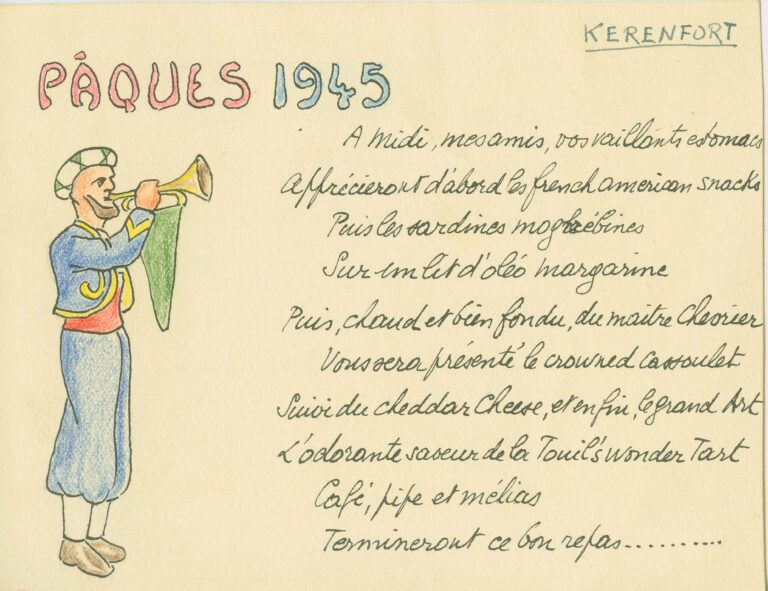 KERENFORT
PÂQUES 1945
A midi, mes amis, vos vaillants estomacs
Apprécieront d'abord les french american snacks
Puis les sardines moghrébines
Sur un lit d'oléo margarine
Puis, chaud et bien fondu, du maitre Chevrier
Vous sera présenté le crowned cassoulet
Suivi du cheddar Cheese, et enfin, le grand Art
L'odorante saveur de la Touil's wonder Tart
Café, pipe et mélias
Termineront ce bon repas..........